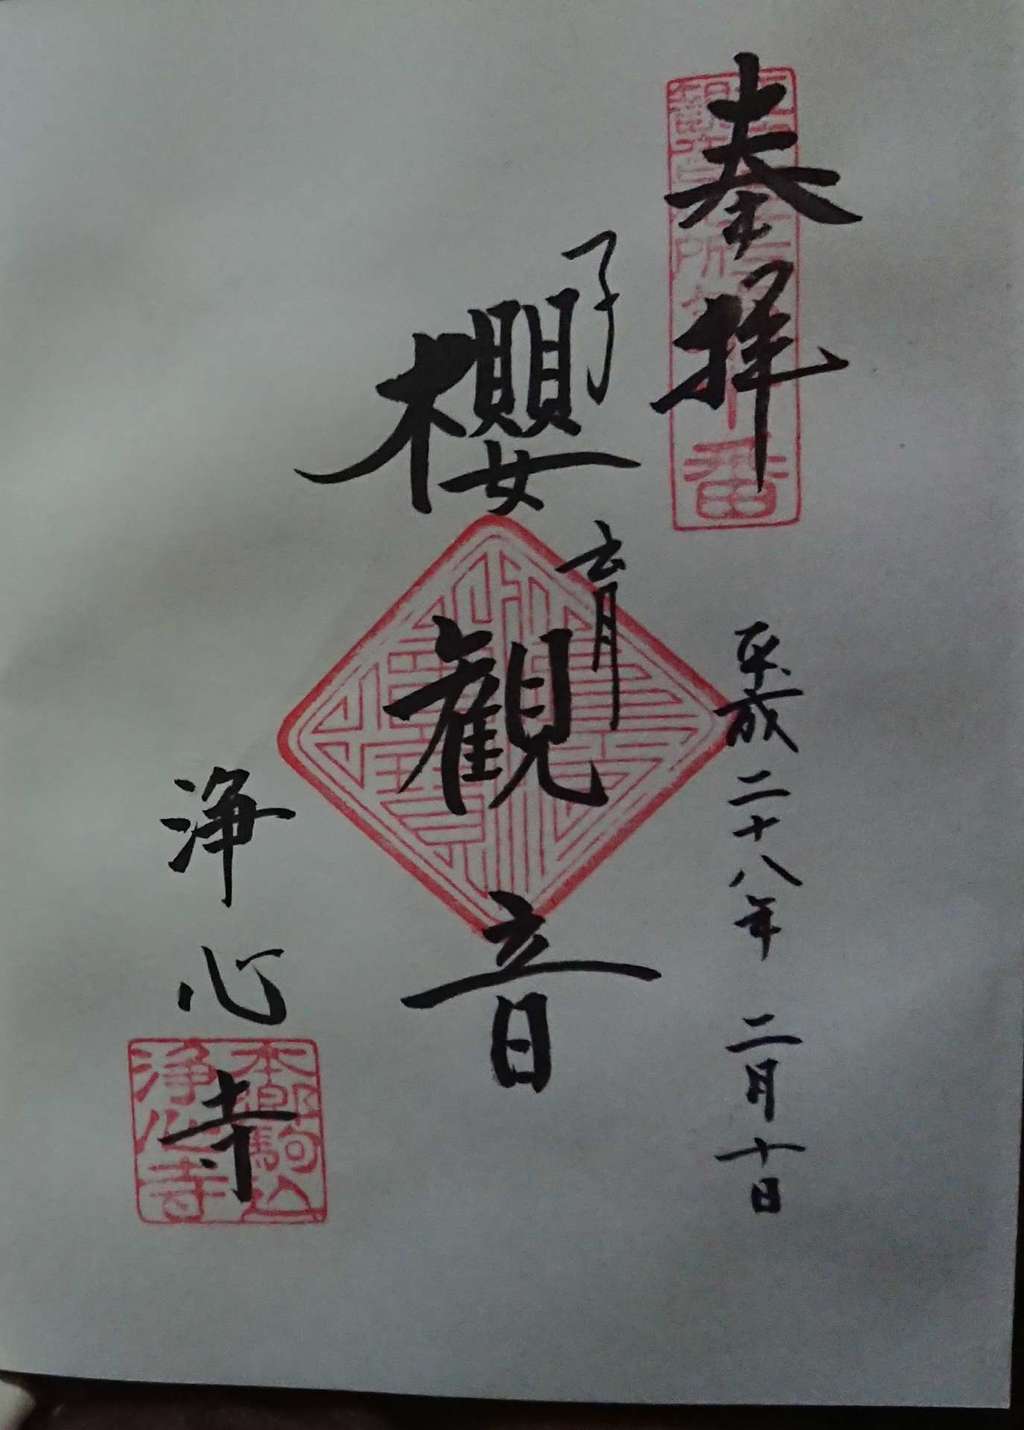 奉拝
平成二十八年 二月十日
子育
櫻観音
浄心寺
本郷駒込
浄心寺